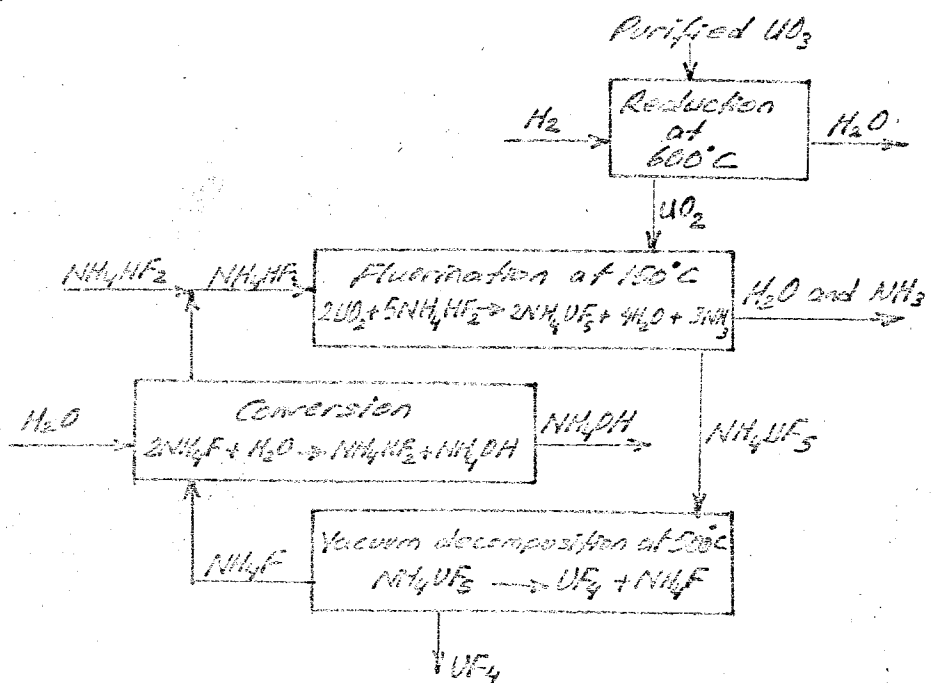 Purified UO3
Reduction
at
600°C
H2
H2O
UO2
NH4HF2
NH4HF2
Fluorination at 150°C
2UO2 + 5NH4HF2 → 2NH4UF5 + 4H2O + 3NH3
H2O and NH3
H2O
Conversion
2NH4F + H2O → NH4HF2 + NH4OH
NH4OH
NH4UF5
NH4F
Vacuum decomposition at 500°C
NH4UF5 → UF4 + NH4F
UF4